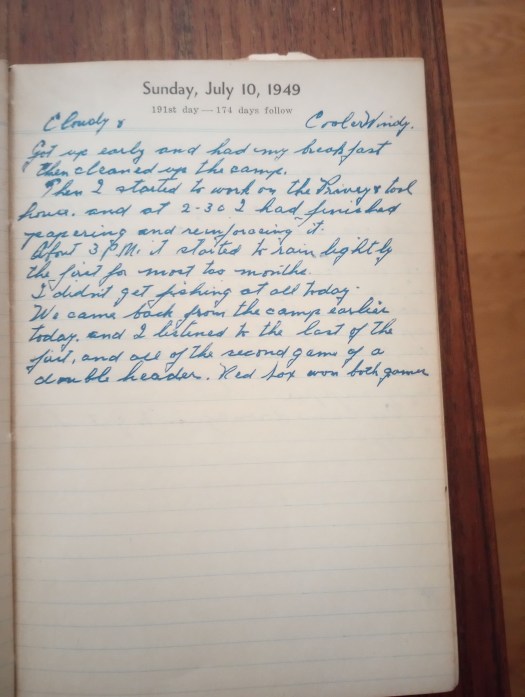 Sunday, July 10, 1949
191st day — 174 days follow
Cloudy & Cooler Windy.
Got up early and had my breakfast
then cleaned up the camp.
Then I started to work on the Privey & tool
house. and at 2-30 I had finished
papering and reinforacing it.
About 3 P.M. it started to rain lightly
the first for most too months.
I didn't get fishing at all today.
We came back from the camp earlier
today. and I listened to the last of the
first, and all of the second game of a
double header. Red Sox won both games